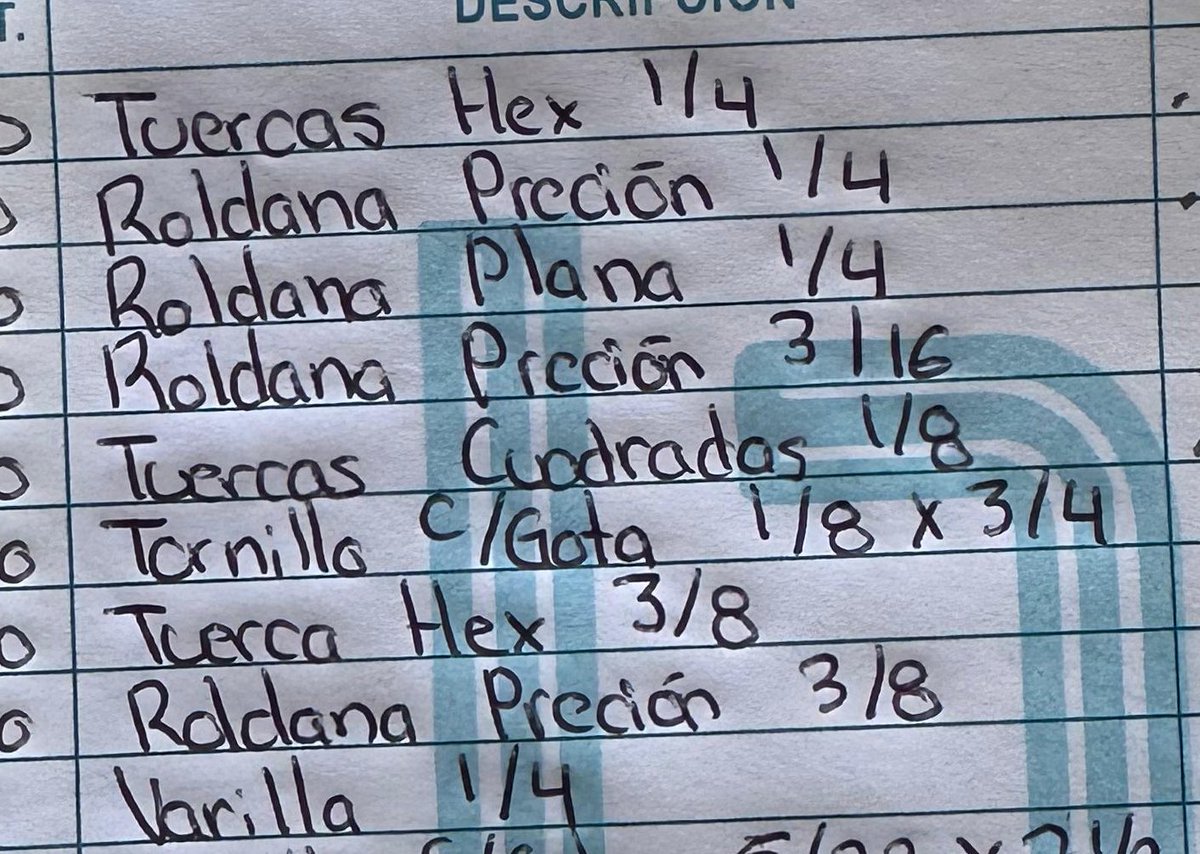 T. DESCRIPCIÓN
Tuercas Hex 1/4
Roldana Preción 1/4
Roldana Plana 1/4
Roldana Preción 3/16
Tuercas Cuadradas 1/8
Tornillo c/Gota 1/8 x 3/4
Tuerca Hex 3/8
Roldana Preción 3/8
Varilla 1/4